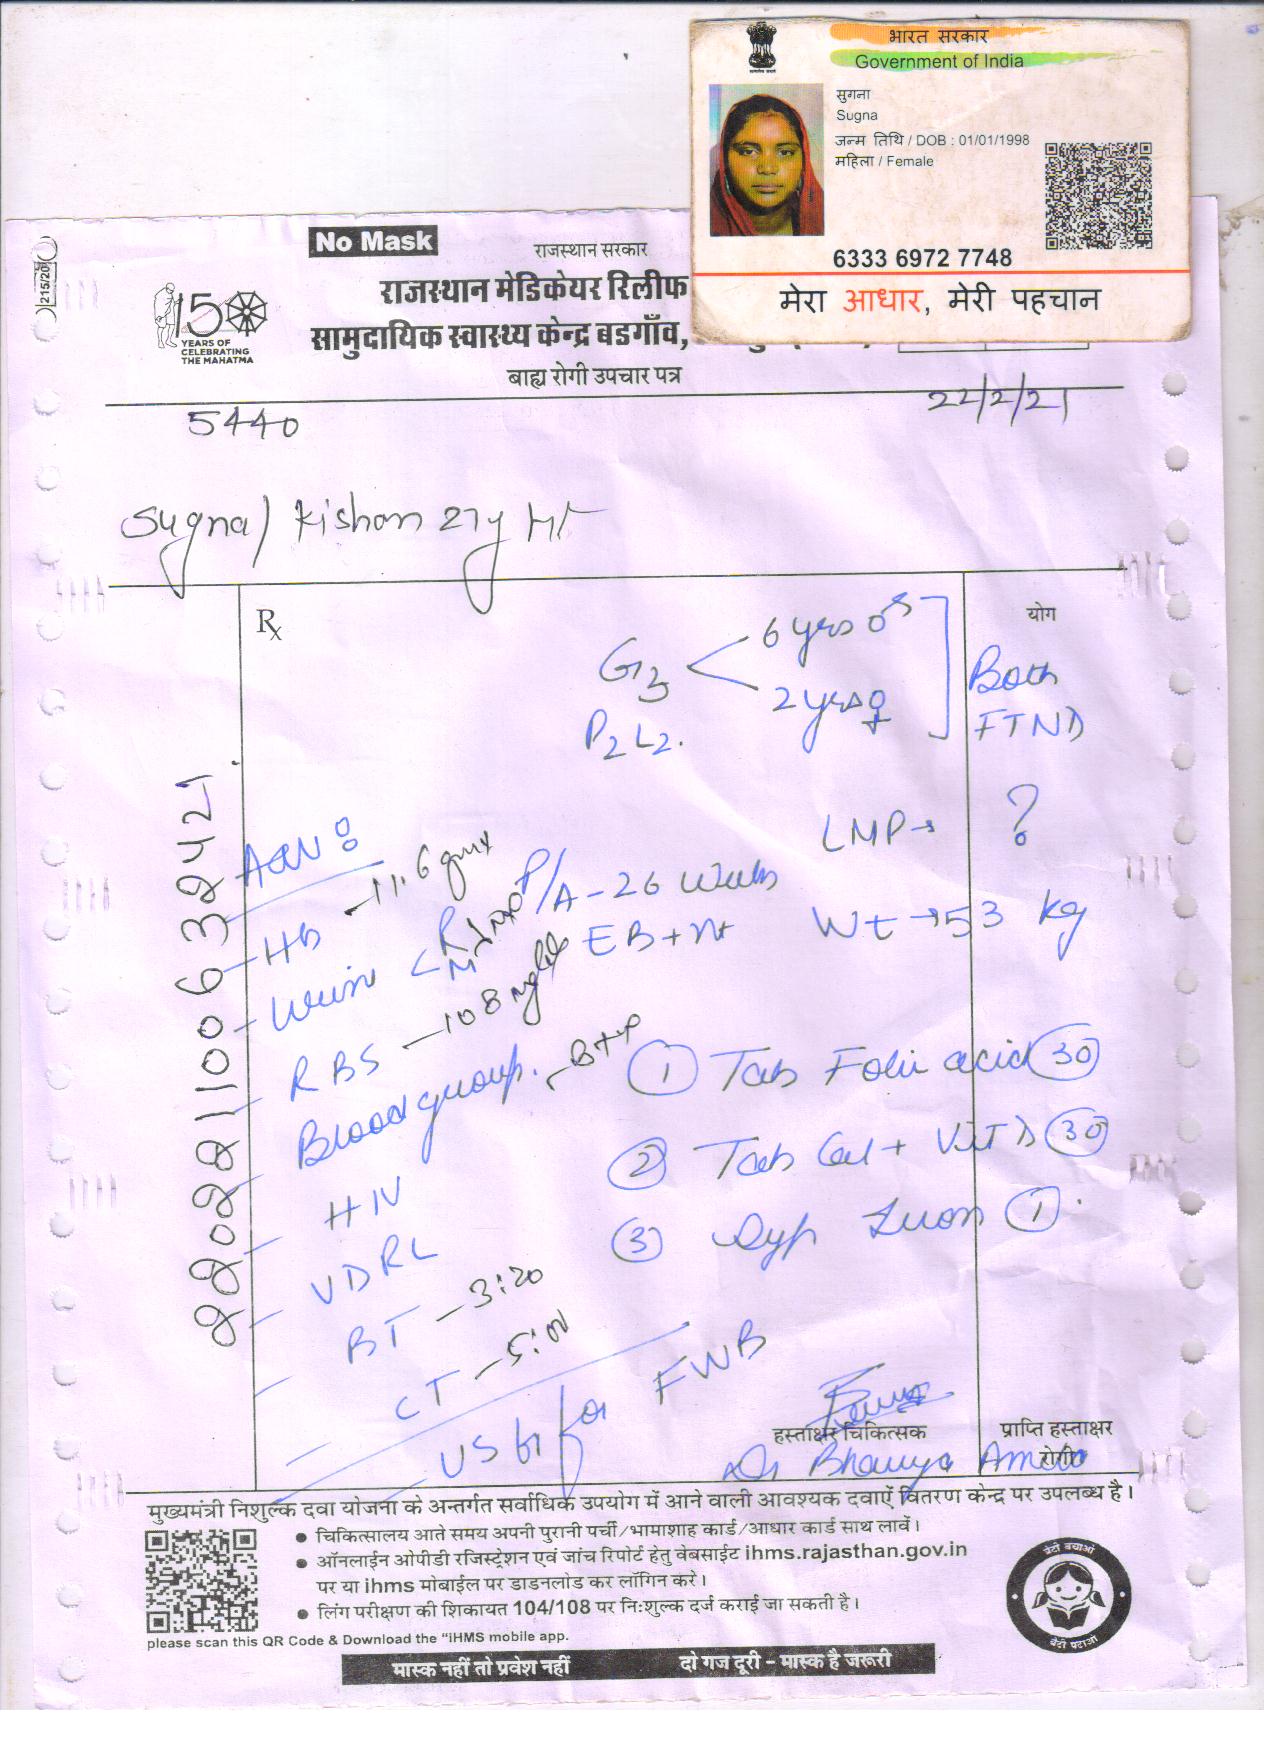 भारत सरकार
Government of India
सुगना
Sugna
जन्म तिथि / DOB : 01/01/1998
महिला / Female
6333 6972 7748
मेरा आधार, मेरी पहचान
215/20
No Mask
राजस्थान सरकार
राजस्थान मेडिकेयर रिलीफ
सामुदायिक स्वास्थ्य केन्द्र बडगाँव,
बाह्य रोगी उपचार पत्र
150
YEARS OF
CELEBRATING
THE MAHATMA
5440
22/2/21
Sugna/ Kishan 27y
Rx
योग
G3
6 yrs ♂
2 yrs ♀
P2 L2.
Both
FTND
LMP → ?
P/A - 26 Weeks
Wt → 53 kg
ANC :
- Hb - 11.6 gm%
- Urine < R M
- RBS - 108 mg/dl
- Blood group. - B+ve
- HIV
- VDRL
- BT - 3:20
- CT
- USG for FWB
① Tab Folic acid 30
② Tab Cal + Vit D 30
③ Syp Iron ①
हस्ताक्षर चिकित्सक
Dr Bhavya
प्राप्ति हस्ताक्षर
रोगी
मुख्यमंत्री निशुल्क दवा योजना के अन्तर्गत सर्वाधिक उपयोग में आने वाली आवश्यक दवाऐं वितरण केन्द्र पर उपलब्ध है।
● चिकित्सालय आते समय अपनी पुरानी पर्ची/भामाशाह कार्ड/आधार कार्ड साथ लावें।
● ऑनलाईन ओपीडी रजिस्ट्रेशन एवं जांच रिपोर्ट हेतु वेबसाईट ihms.rajasthan.gov.in
पर या ihms मोबाईल पर डाडनलोड कर लॉगिन करे।
● लिंग परीक्षण की शिकायत 104/108 पर निःशुल्क दर्ज कराई जा सकती है।
please scan this QR Code & Download the "iHMS mobile app.
बेटी बचाओ
बेटी पढाओ
मास्क नहीं तो प्रवेश नहीं
दो गज दूरी - मास्क है जरूरी